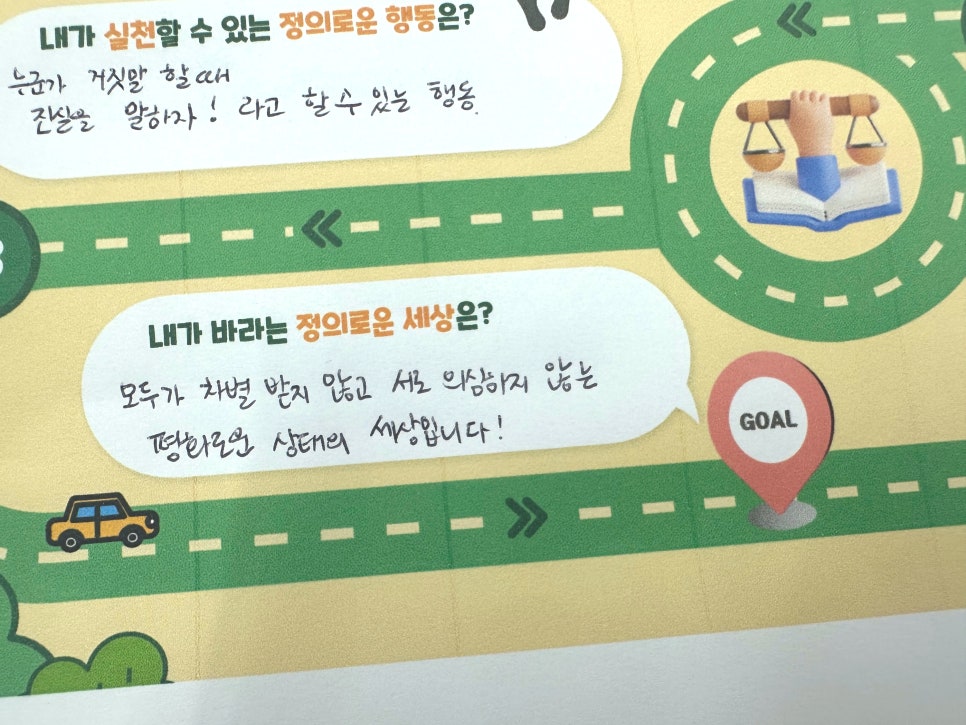 내가 실천할 수 있는 정의로운 행동은?
누군가 거짓말 할 때
진실을 말하자! 라고 할 수 있는 행동.
내가 바라는 정의로운 세상은?
모두가 차별 받지 않고 서로 의심하지 않는
평화로운 상태의 세상입니다!
GOAL